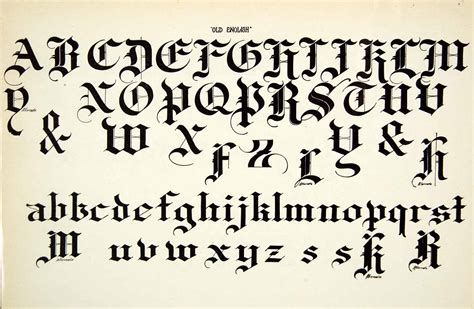 "OLD ENGLISH"
ABCDEFGHIJKLM
Y NOPQRSTUV
& W X Y &
F Z L
abbcdefghijklmnopqrst
M uvwxyz s s K R